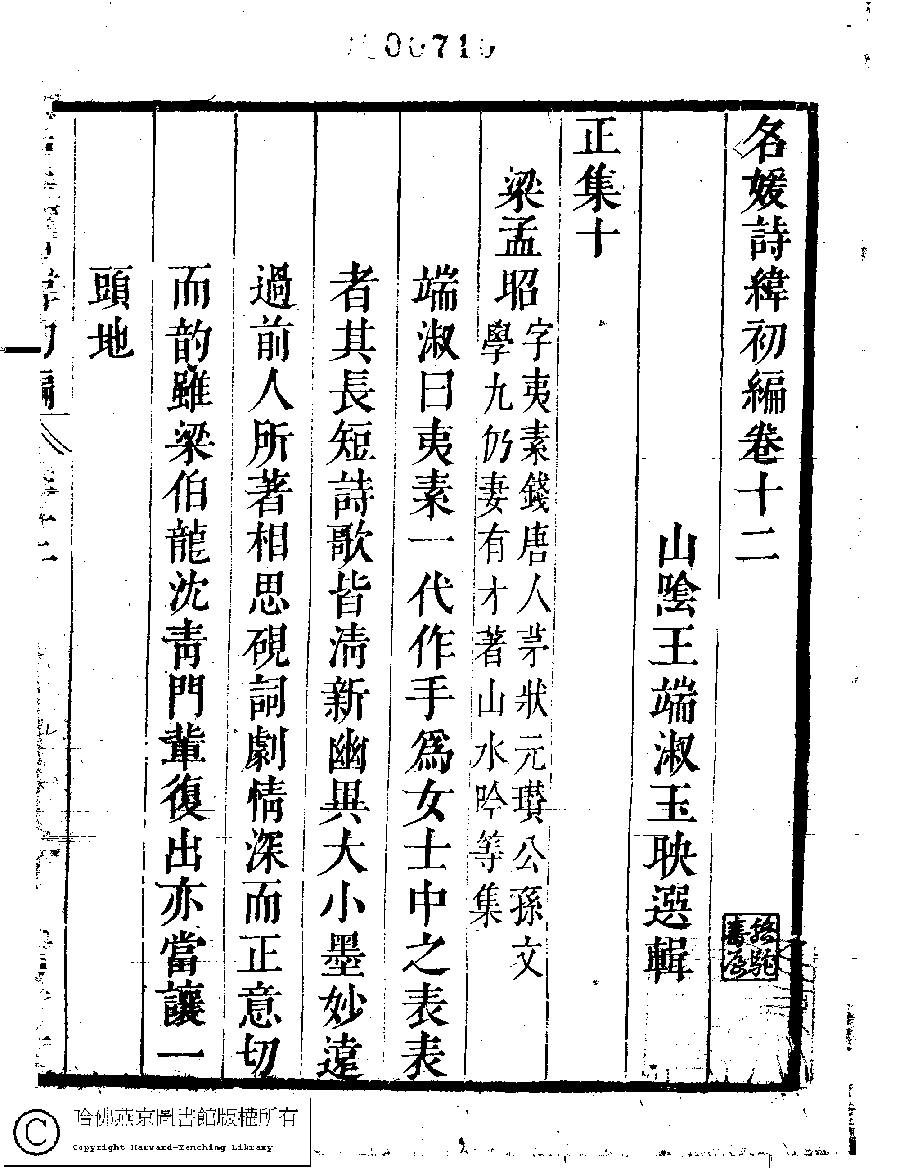 00710
名媛詩緯初編卷十二
山陰王端淑玉映選輯
正集十
梁孟昭
字夷素錢唐人茅狀元瓚公孫文
學九仍妻有才著山水吟等集
端淑曰夷素一代作手爲女士中之表表
者其長短詩歌皆淸新幽異大小墨妙遠
過前人所著相思硯詞劇情深而正意切
而韵雖梁伯龍沈靑門輩復出亦當讓一
頭地
哈佛燕京圖書館版權所有
Copyright Harvard-Yenching Library